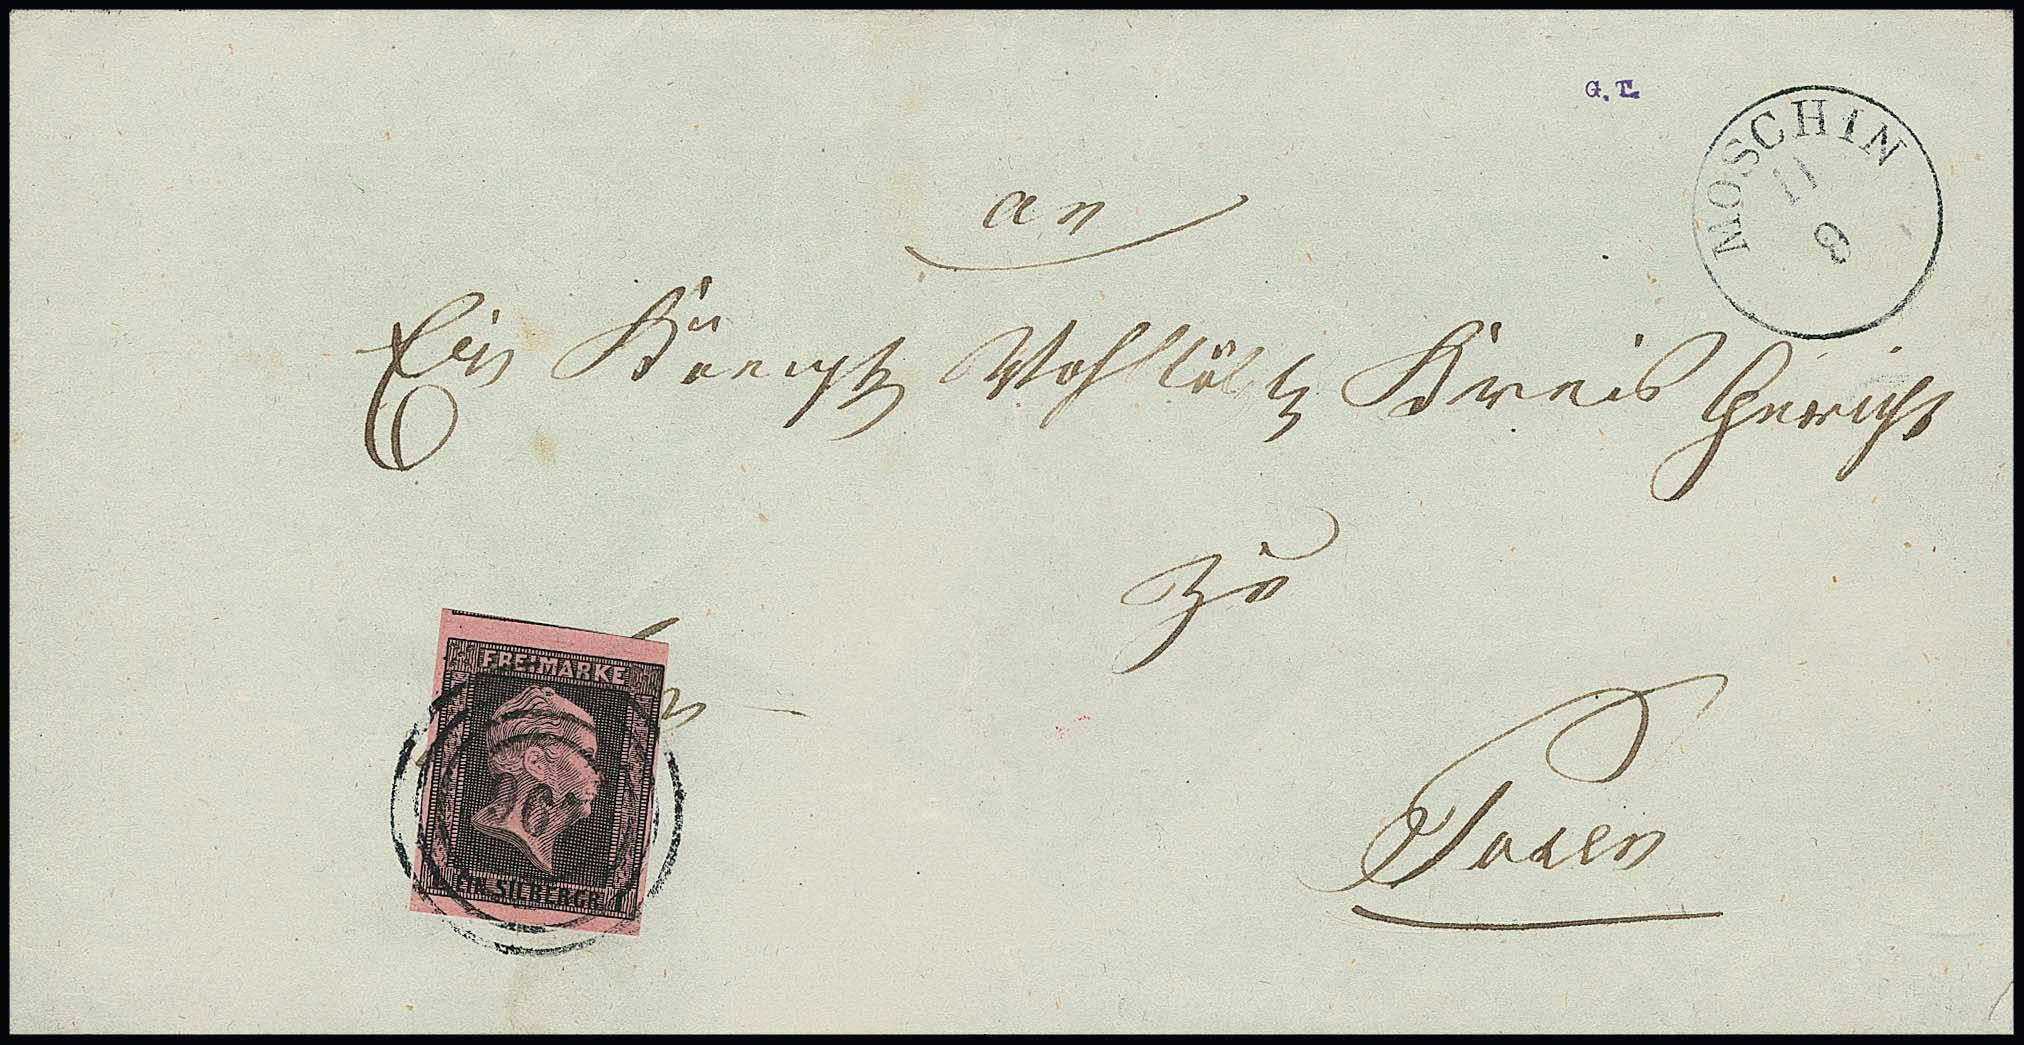 G. E.
MOSCHIN
11
8
an
Ein Königl Wohllöbl Kreis Gericht
zu
Posen
FREIMARKE
EIN SILBERGR. 1